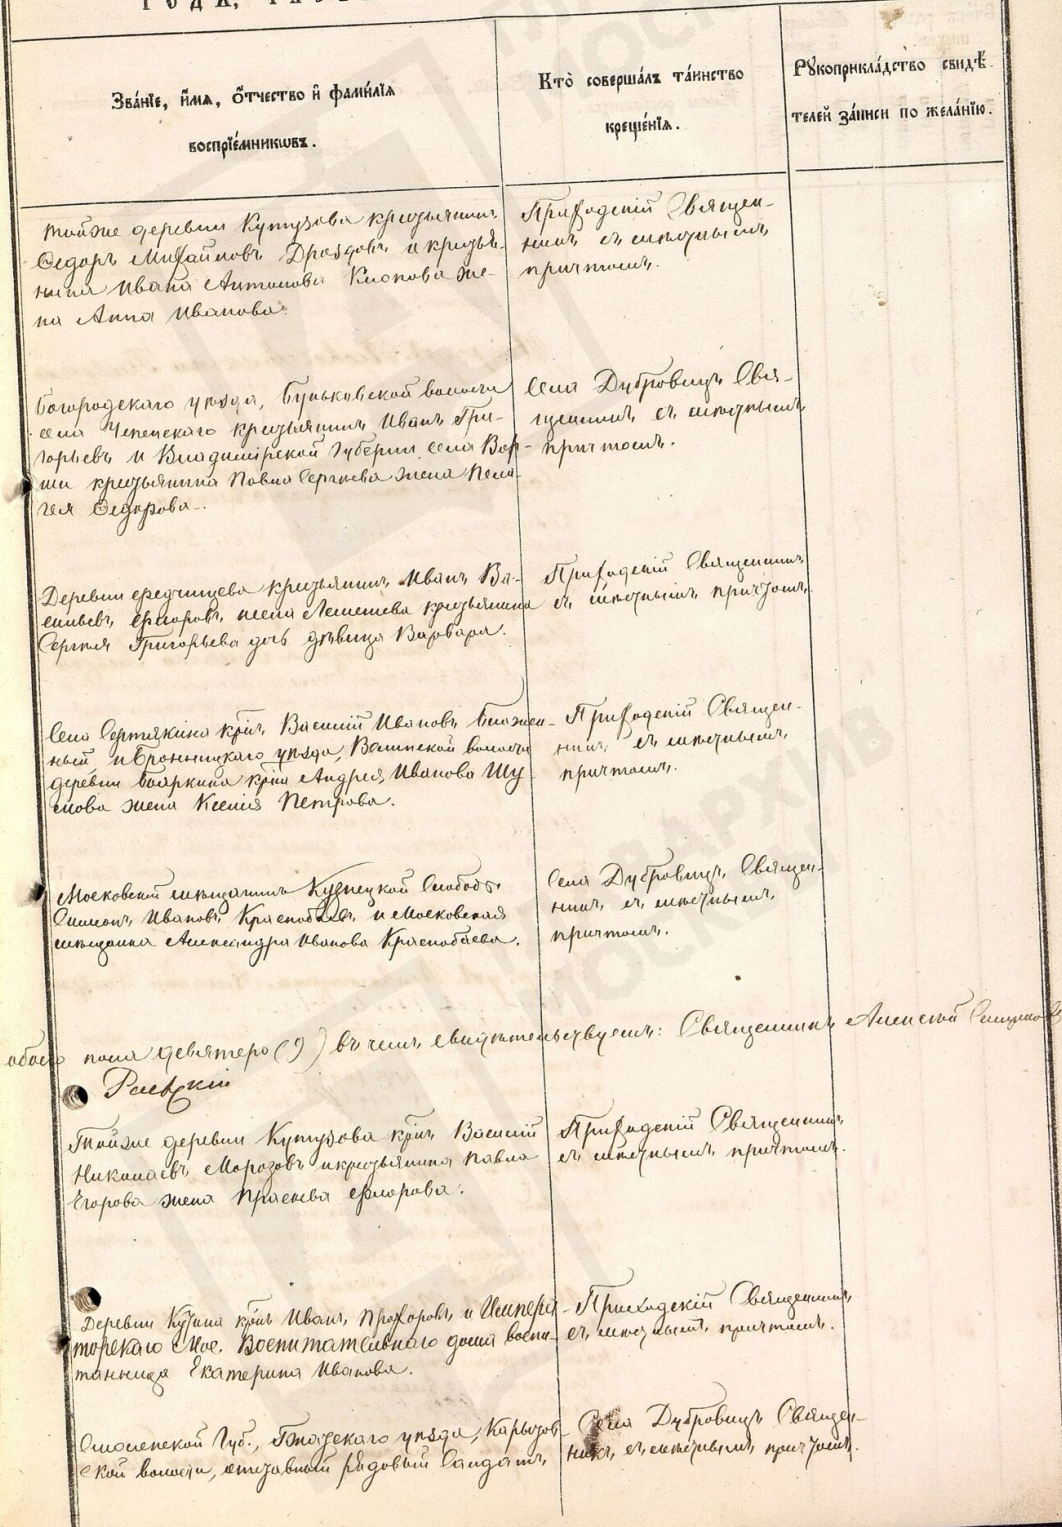 Зва́нїе, и҆́мя, ѻ҆́тчество и҆ фами́лїя
воспрїе́мникѡвъ.
Кто̀ соверша́лъ та́инство
креще́нїя.
Рꙋкоприкла́дство свидѣ́-
телей за́писи по жела́нїю.
Тойже деревни Кутузова крестьянинъ
Ѳедоръ Михайловъ Дроздовъ и крестья-
нина Ивана Антонова Клопова же-
на Анна Иванова.
Приходскій Священ-
никъ съ мѣстнымъ
причтомъ.
Богородскаго уѣзда, Буньковской волости
села крестьянинъ Иванъ Гри-
горьевъ и Владимірской Губерніи села Вор-
ши крестьянина Павла Сергѣева жена Пела-
гея Ѳедорова.
Села Дубровицъ Свя-
щенникъ съ мѣстнымъ
причтомъ.
Деревни крестьянинъ Иванъ Ва-
сильевъ Флоровъ, села Лемешева крестьянина
Сергѣя Григорьева дочь дѣвица Варвара.
Приходскій Священникъ
съ мѣстнымъ причтомъ.
Села Сертякина кр̃нъ Василій Ивановъ Блажен-
ный и Бронницкаго уѣзда, Велинской волости
деревни Бояркина кр̃на Андрея Иванова Шу-
мова жена Ксенія Петрова.
Приходскій Священ-
никъ съ мѣстнымъ
причтомъ.
Московскій мѣщанинъ Кузнецкой Слободы
Симеонъ Ивановъ Краснобаевъ и Московская
мѣщанка Александра Иванова Краснобаева.
Села Дубровицъ Священ-
никъ съ мѣстнымъ
причтомъ.
обоего пола девятеро (9) въ чемъ свидѣтельствуемъ: Священникъ Алексѣй
Раевскій
Тойже деревни Кутузова кр̃нъ Василій
Николаевъ Морозовъ и крестьянина Павла
Егорова жена Праскева Флорова.
Приходскій Священникъ
съ мѣстнымъ причтомъ.
Деревни кр̃нъ Иванъ Прохоровъ и Импера-
торскаго Мос. Воспитательнаго дома воспи-
танница Екатерина Иванова.
Приходскій Священникъ
съ мѣстнымъ причтомъ.
Смоленской Губ., Гжатскаго уѣзда,
ской волости, отставный рядовый Солдатъ
Села Дубровицъ Священ-
никъ съ мѣстнымъ причтомъ.